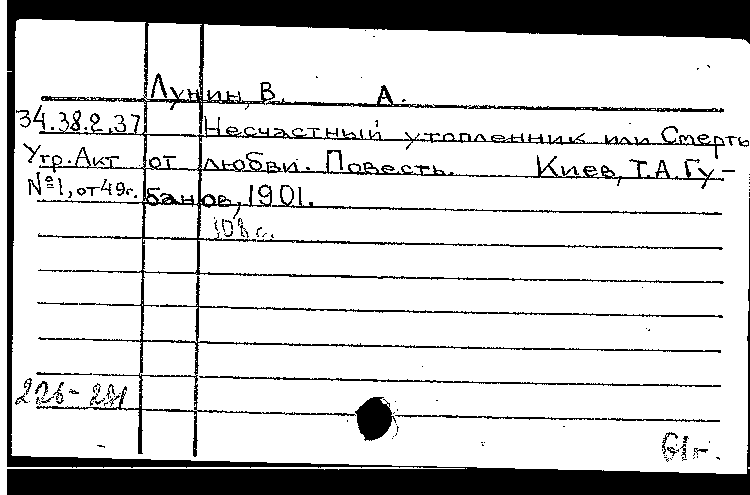 Лунин, В. А.
34.38.2.37 Несчастный утопленник или Смерть
Утр. Акт от любви. Повесть. Киев, Т.А. Гу-
№1, от 49г. банов, 1901.
108 с.
226-281
61г.